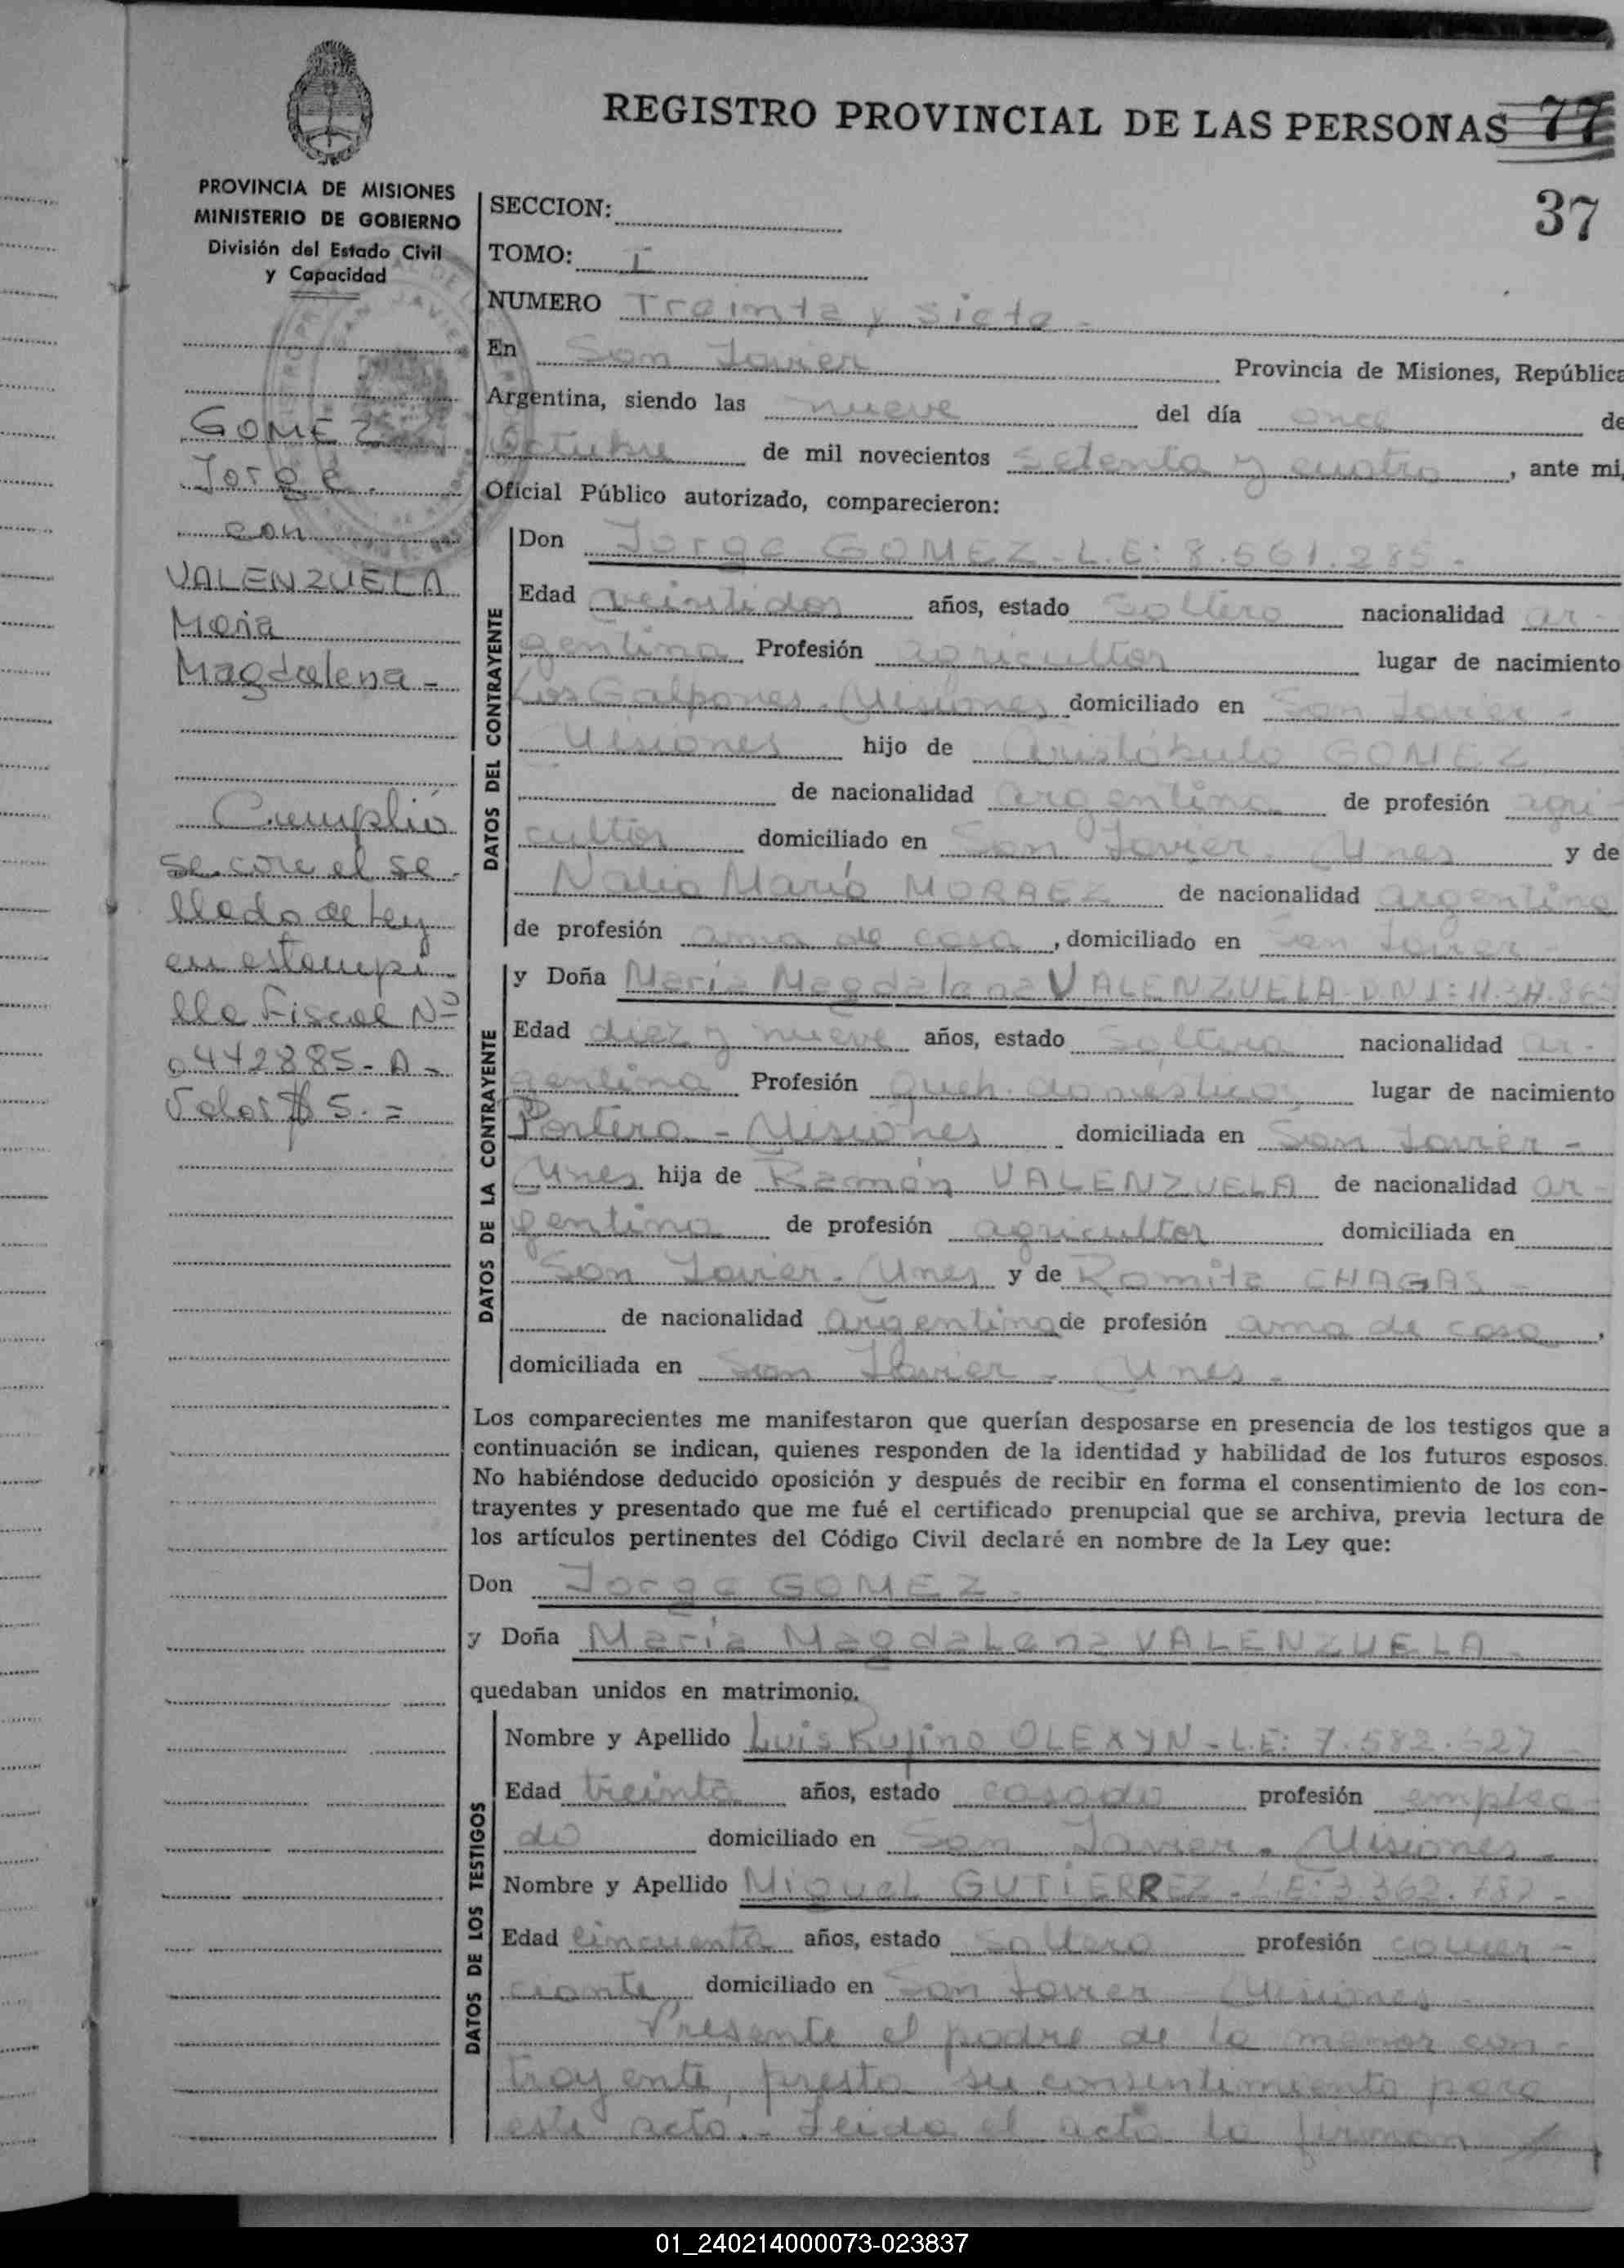 REGISTRO PROVINCIAL DE LAS PERSONAS 77
37
PROVINCIA DE MISIONES
MINISTERIO DE GOBIERNO
División del Estado Civil
y Capacidad
GOMEZ
Jorge.
con
VALENZUELA
María
Magdalena -
Cumplió
se con el se
llado de Ley
en estampi
lla Fiscal Nº
0442885 - A -
Valor $ 5. =
SECCION:
TOMO: I
NUMERO Treinta y siete -
En San Javier Provincia de Misiones, República
Argentina, siendo las nueve del día once de
Octubre de mil novecientos setenta y cuatro, ante mi,
Oficial Público autorizado, comparecieron:
DATOS DEL CONTRAYENTE
Don Jorge GOMEZ - L.E: 8.561.285 -
Edad veintidos años, estado soltero nacionalidad ar -
gentina Profesión agricultor lugar de nacimiento
Los Galpones - Misiones domiciliado en San Javier -
Misiones hijo de Aristóbulo GOMEZ
de nacionalidad argentina de profesión agri -
cultor domiciliado en San Javier - Mnes y de
María MORAEZ de nacionalidad argentina
de profesión ama de casa, domiciliado en San Javier
DATOS DE LA CONTRAYENTE
y Doña María Magdalena VALENZUELA - DNI:
Edad diez y nueve años, estado soltera nacionalidad ar -
gentina Profesión queh. domésticos lugar de nacimiento
Portera - Misiones domiciliada en San Javier -
Mnes hija de Ramón VALENZUELA de nacionalidad ar -
gentina de profesión agricultor domiciliada en
San Javier - Mnes y de Romita CHAGAS -
de nacionalidad argentina de profesión ama de casa,
domiciliada en San Javier - Mnes -
Los comparecientes me manifestaron que querían desposarse en presencia de los testigos que a
continuación se indican, quienes responden de la identidad y habilidad de los futuros esposos.
No habiéndose deducido oposición y después de recibir en forma el consentimiento de los con-
trayentes y presentado que me fué el certificado prenupcial que se archiva, previa lectura de
los artículos pertinentes del Código Civil declaré en nombre de la Ley que:
Don Jorge GOMEZ -
y Doña María Magdalena VALENZUELA -
quedaban unidos en matrimonio.
DATOS DE LOS TESTIGOS
Nombre y Apellido Luis Rufino OLEXYN - L.E: 7.582.527 -
Edad treinta años, estado casado profesión emplea -
do domiciliado en San Javier - Misiones -
Nombre y Apellido Miguel GUTIERREZ - L.E: 3.362.787 -
Edad cincuenta años, estado soltero profesión comer -
ciante domiciliado en San Javier Misiones -
Presente el padre de la menor con -
trayente, presta su consentimiento para
este acto. - Leida el acta la firman
01_240214000073-023837